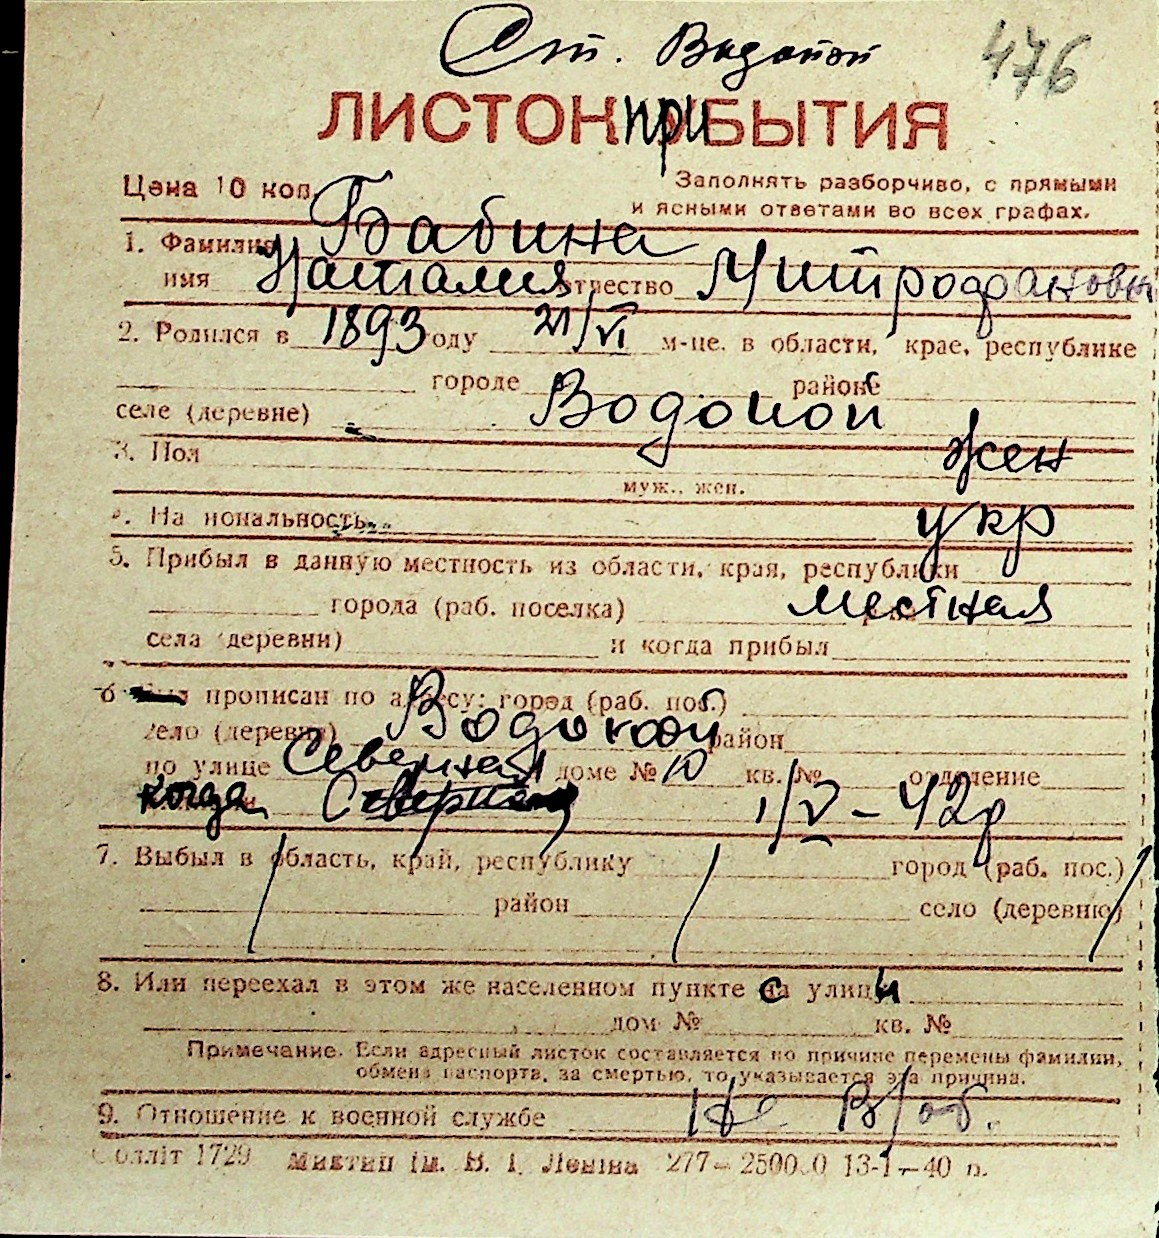 Ст. Водопой
476
ЛИСТОК ПРИБЫТИЯ
Цена 10 коп.
Заполнять разборчиво, с прямыми
и ясными ответами во всех графах.
1. Фамилия Бабина
имя Наталия отчество Митрофановн
2. Родился в 1893 году 21/VI м-це. в области, крае, республике
городе районе
селе (деревне) Водопой
3. Пол жен
муж., жен.
На нональность укр
5. Прибыл в данную местность из области, края, республики
города (раб. поселка) местная
села (деревни) и когда прибыл
6 прописан по адресу: город (раб. пос.)
село (деревня) Водопой район
по улице Северная доме № 10 кв. № отделение
когда Северная 1/V - 42 г
7. Выбыл в область, край, республику город (раб. пос.)
район село (деревню)
8. Или переехал в этом же населенном пункте с улицы
дом № кв. №
Примечание. Если адресный листок составляется по причине перемены фамилии,
обмена паспорта, за смертью, то указывается эта причина.
9. Отношение к военной службе Не в/об.
Обллiт 1729 Миктип iм. В. I. Ленiна 277—2500.0 13-1—40 п.